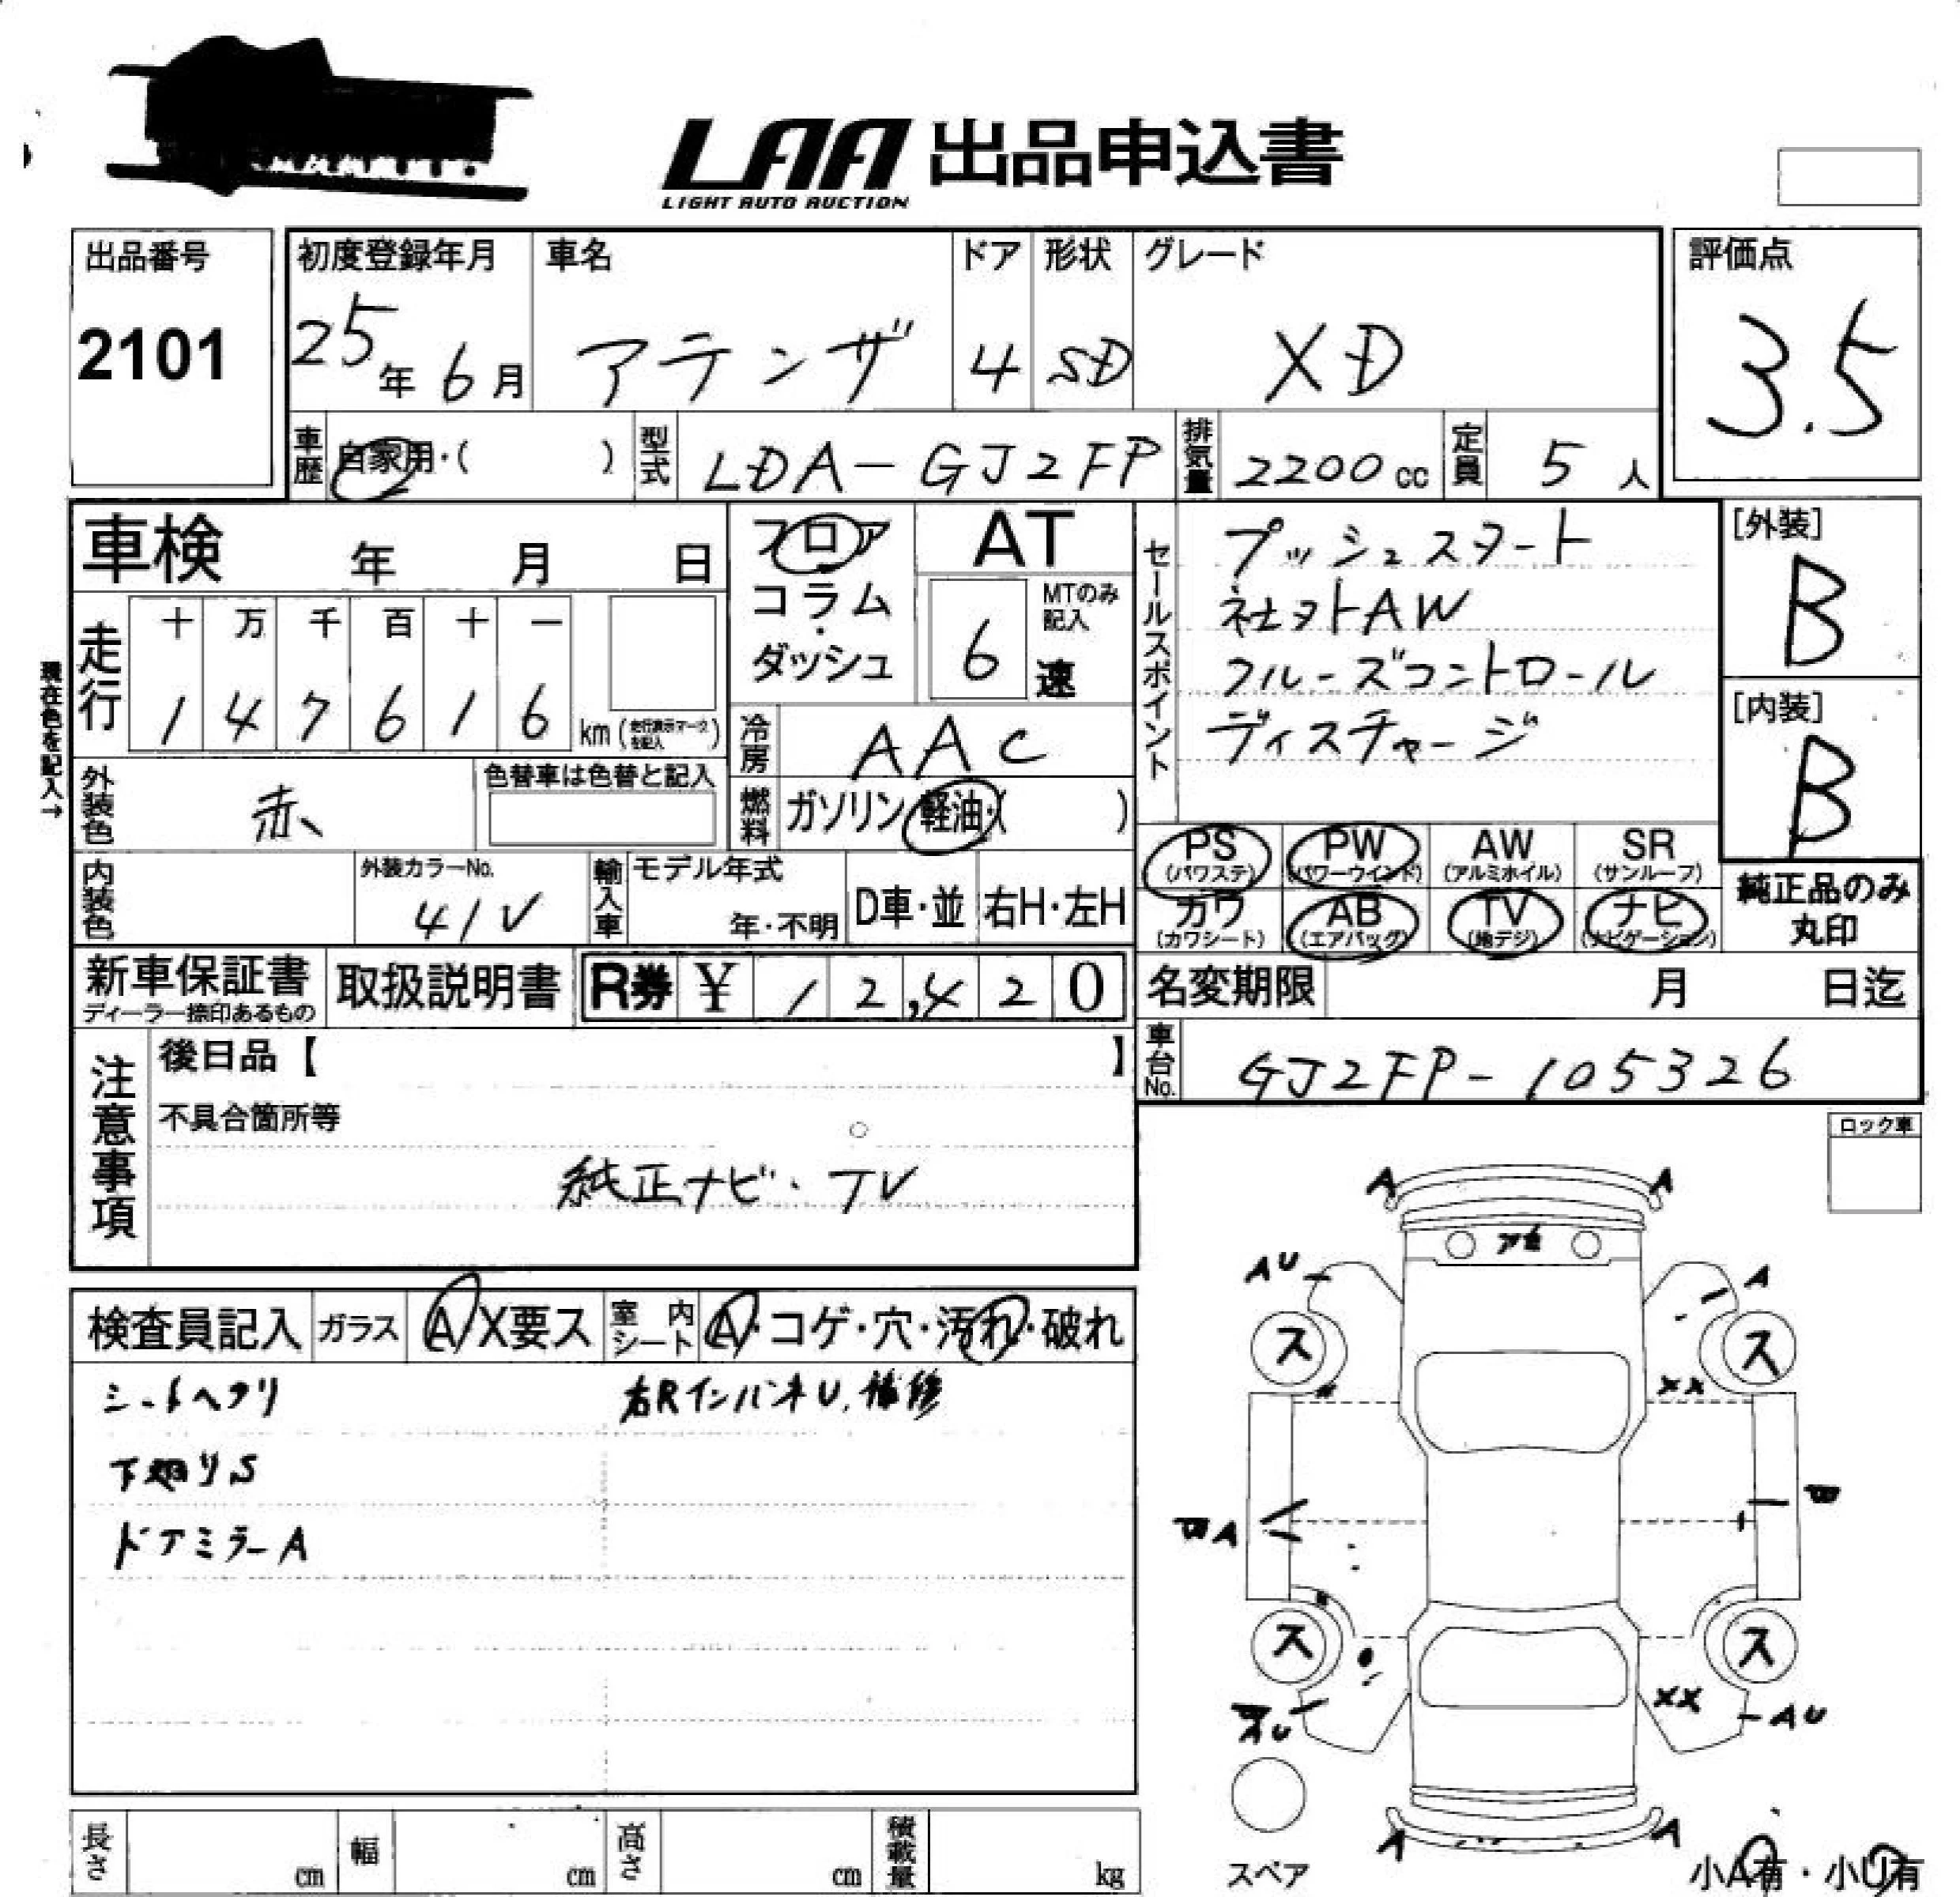 LAA 出品申込書
LIGHT AUTO AUCTION
出品番号
2101
初度登録年月
25年 6月
車名
アテンザ
ドア
4
形状
SD
グレード
XD
評価点
3.5
車歴
自家用・( )
型式
LDA-GJ2FP
排気量
2200 cc
定員
5 人
車検 年 月 日
フロア
コラム
・
ダッシュ
AT
MTのみ記入
6 速
セールスポイント
プッシュスタート
社外AW
クルーズコントロール
ディスチャージ
[外装]
B
[内装]
B
現在色を記入→
走行
十 万 千 百 十 一
1 4 7 6 1 6 km (走行表示マークを記入)
冷房
AAC
外装色
赤
色替車は色替と記入
燃料
ガソリン・軽油・( )
PS (パワステ)
PW (パワーウインド)
AW (アルミホイル)
SR (サンルーフ)
カワ (カワシート)
AB (エアバッグ)
TV (地デジ)
ナビ (ナビゲーション)
純正品のみ
丸印
内装色
外装カラーNo.
41V
輸入車
モデル年式
年・不明
D車・並
右H・左H
新車保証書
ディーラー捺印あるもの
取扱説明書
R券 ¥ 12,420
名変期限 月 日迄
車台No.
GJ2FP-105326
注意事項
後日品【 】
不具合箇所等
純正ナビ・TV
ロック車
検査員記入
ガラス
A X要ス
室内シート
A・コゲ・穴・汚れ・破れ
シートヘタリ
右RインパネU,補修
下廻りS
ドアミラーA
A A
AU A
ス ス
XX
A
ス ス
XX
AU AU
A A
スペア
小A有・小U有
長さ cm
幅 cm
高さ cm
積載量 kg